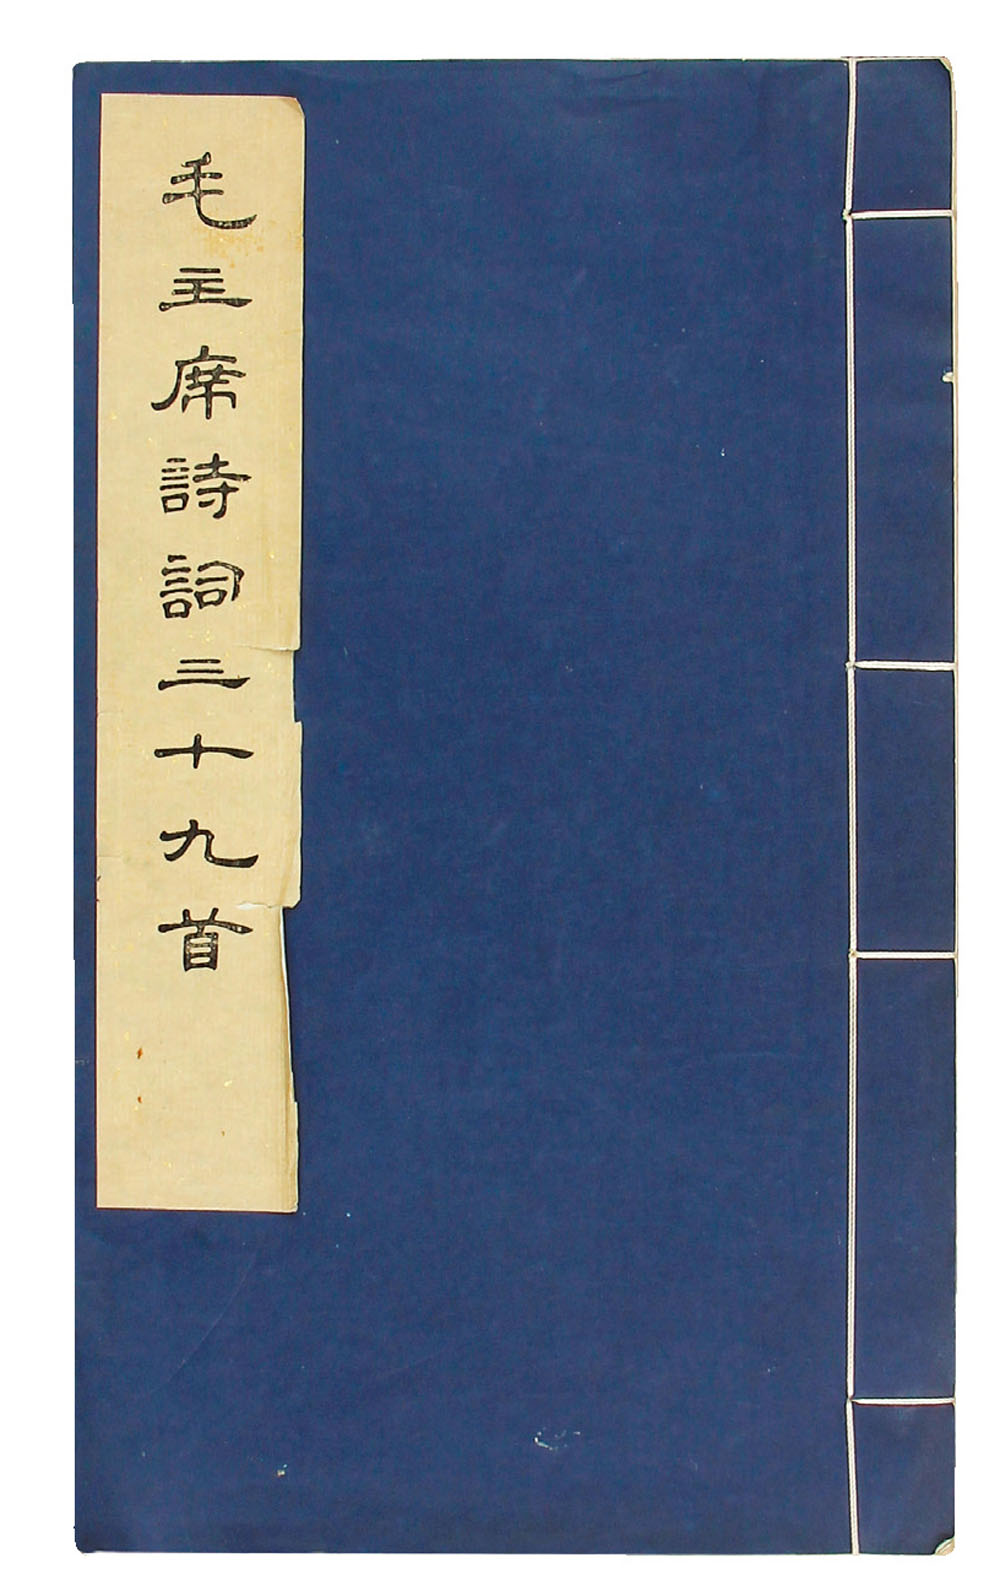 毛主席詩詞三十九首